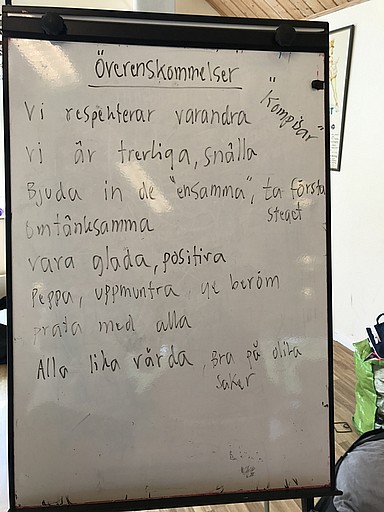 Överenskommelser
"Kompisar"
Vi respekterar varandra
Vi är trevliga, snälla
Bjuda in de "ensamma", ta första
steget
omtänksamma
vara glada, positiva
Peppa, uppmuntra ge beröm
prata med alla
Alla lika värda, Bra på olika
saker